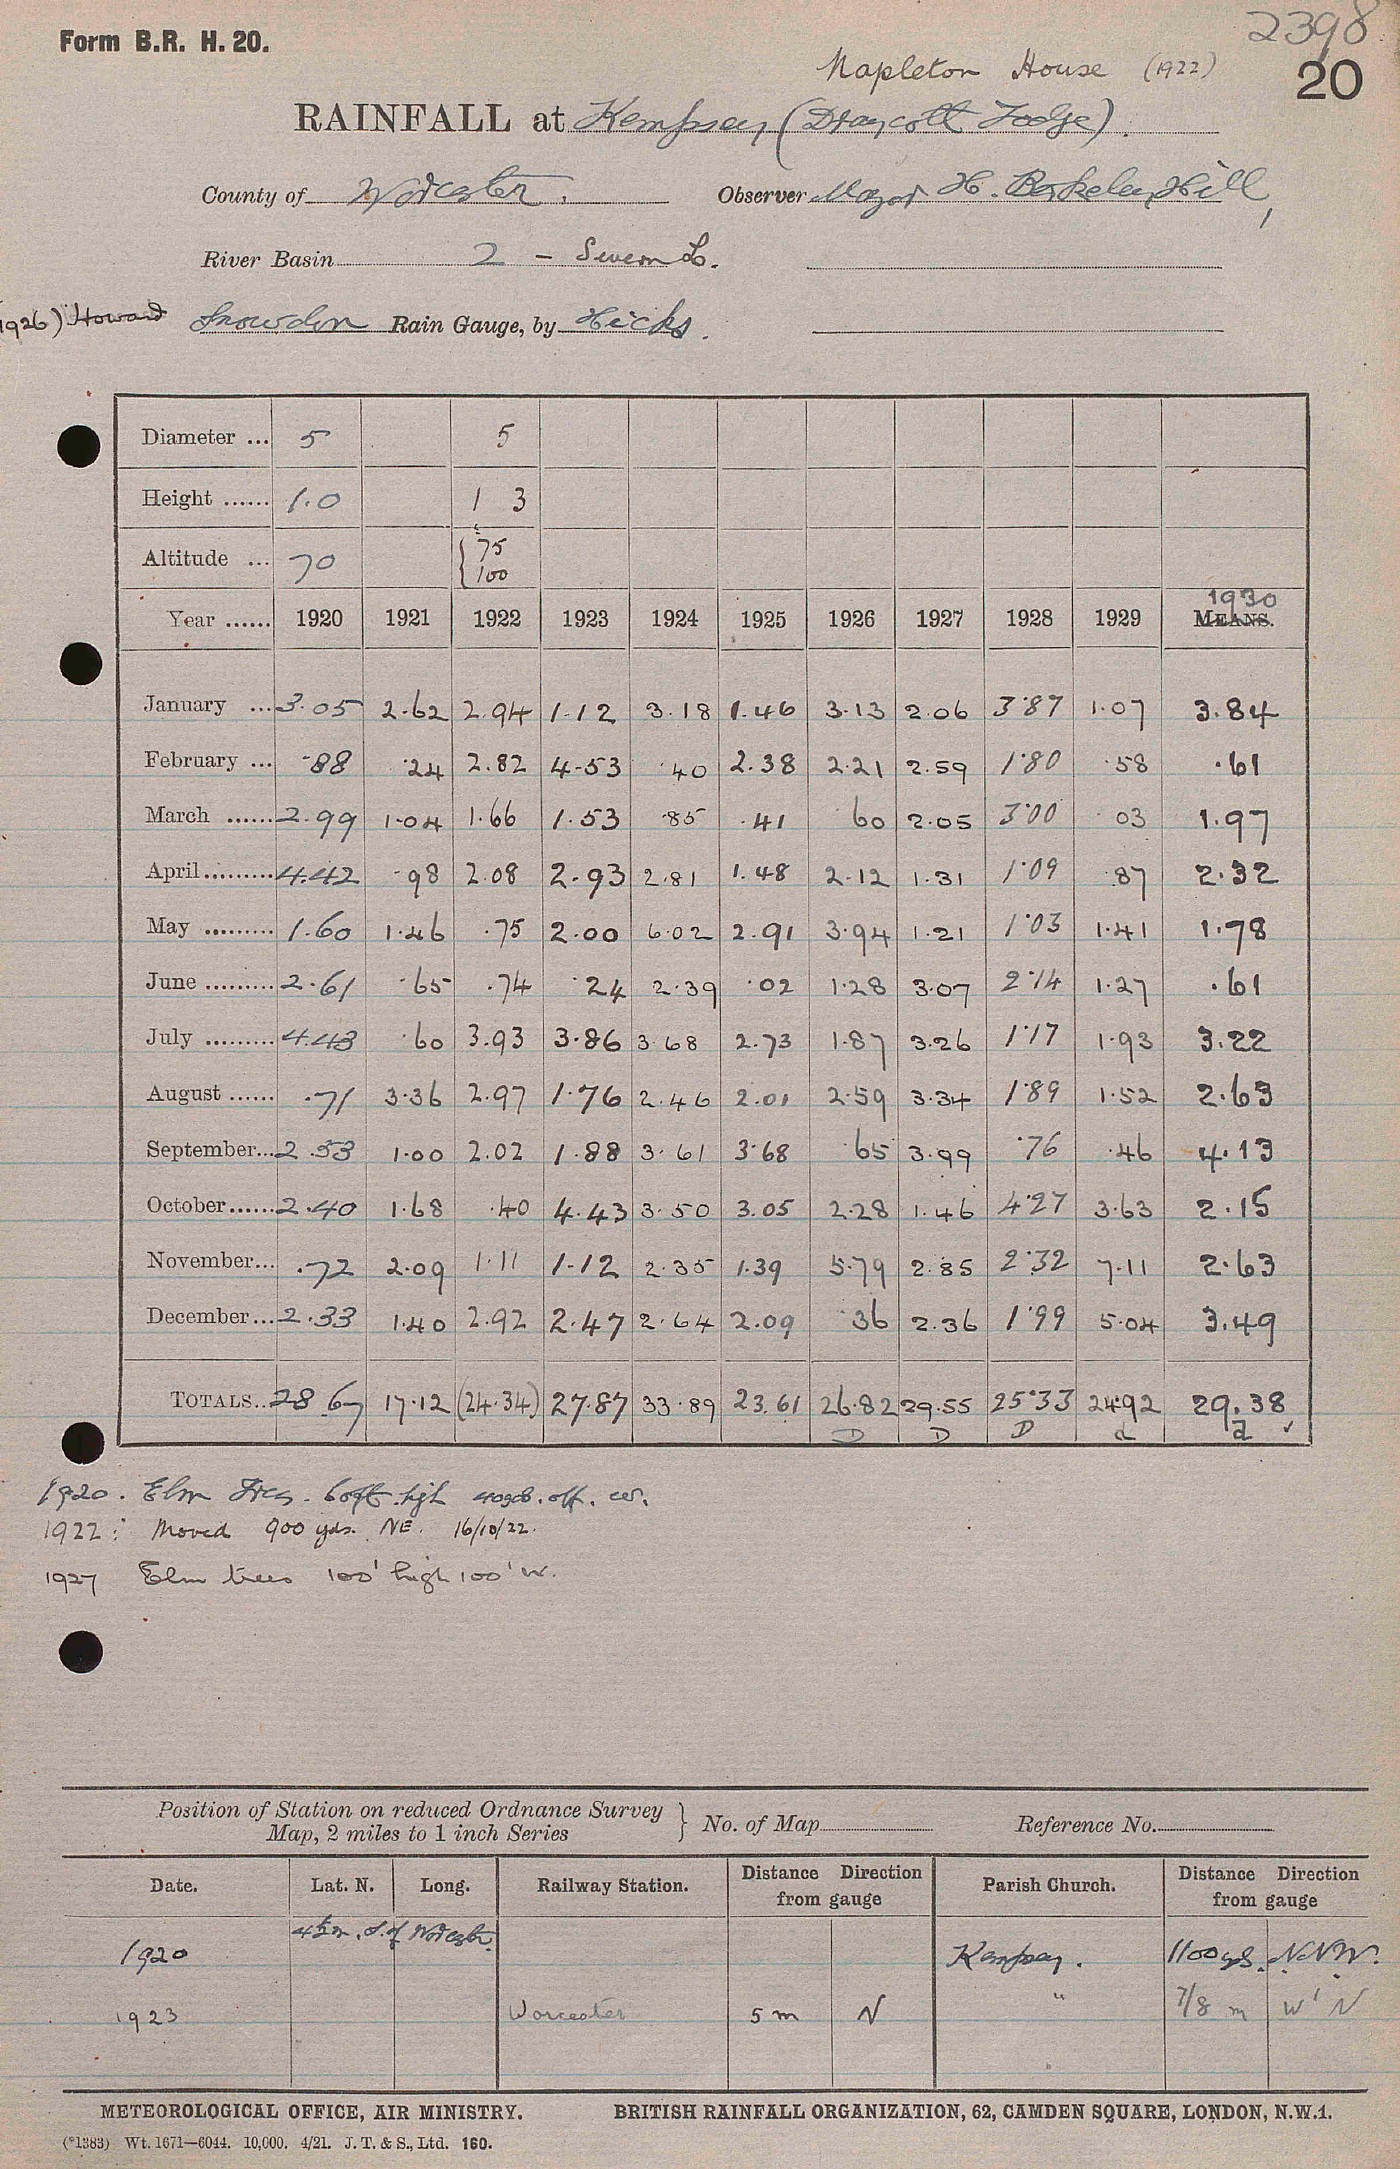 Form B.R. H. 20.
2398
20
Mapleton House (1922)
RAINFALL at Kempsey (Draycott Lodge).
County of Worcester. Observer Major H. Berkeley Hill,
River Basin 2 - Severn L.
1926) Howard Snowdon Rain Gauge, by Hicks.
Diameter ... 5 5
Height ...... 1.0 1 3
Altitude ... 70 {75
100
1930
Year ...... 1920 1921 1922 1923 1924 1925 1926 1927 1928 1929 MEANS.
January ... 3.05 2.62 2.94 1.12 3.18 1.46 3.13 2.06 3.87 1.07 3.84
February ... .88 .24 2.82 4.53 .40 2.38 2.21 2.59 1.80 .58 .61
March ...... 2.99 1.04 1.66 1.53 .85 .41 60 2.05 3.00 03 1.97
April ......... 4.42 .98 2.08 2.93 2.81 1.48 2.12 1.31 1.09 .87 2.32
May ......... 1.60 1.46 .75 2.00 6.02 2.91 3.94 1.21 1.03 1.41 1.78
June ......... 2.61 .65 .74 .24 2.39 .02 1.28 3.07 2.14 1.27 .61
July ......... 4.43 .60 3.93 3.86 3.68 2.73 1.87 3.26 1.17 1.93 3.22
August ...... .71 3.36 2.97 1.76 2.46 2.01 2.59 3.34 1.89 1.52 2.63
September... 2.53 1.00 2.02 1.88 3.61 3.68 .65 3.99 .76 .46 4.13
October...... 2.40 1.68 .40 4.43 3.50 3.05 2.28 1.46 4.27 3.63 2.15
November... .72 2.09 1.11 1.12 2.35 1.39 5.79 2.85 2.32 7.11 2.63
December... 2.33 1.40 2.92 2.47 2.64 2.09 .36 2.36 1.99 5.04 3.49
TOTALS.. 28.67 17.12 (24.34) 27.87 33.89 23.61 26.82 29.55 25.33 24.92 29.38
D D D d d ✓
1920. Elm Trees. 60ft. high 40yds. off.
1922: Moved 900 yds. NE. 16/10/22.
1927 Elm trees 100' high 100' W.
Position of Station on reduced Ordnance Survey
Map, 2 miles to 1 inch Series } No. of Map Reference No.
Date. Lat. N. Long. Railway Station. Distance Direction from gauge Parish Church. Distance Direction from gauge
S. of Worcester.
1920 Kempsey. 1100 yds. NNW.
1923 Worcester 5 m N " 7/8 m W'N
METEOROLOGICAL OFFICE, AIR MINISTRY. BRITISH RAINFALL ORGANIZATION, 62, CAMDEN SQUARE, LONDON, N.W.1.
(*1383) Wt. 1671—6044. 10,000. 4/21. J. T. & S., Ltd. 160.